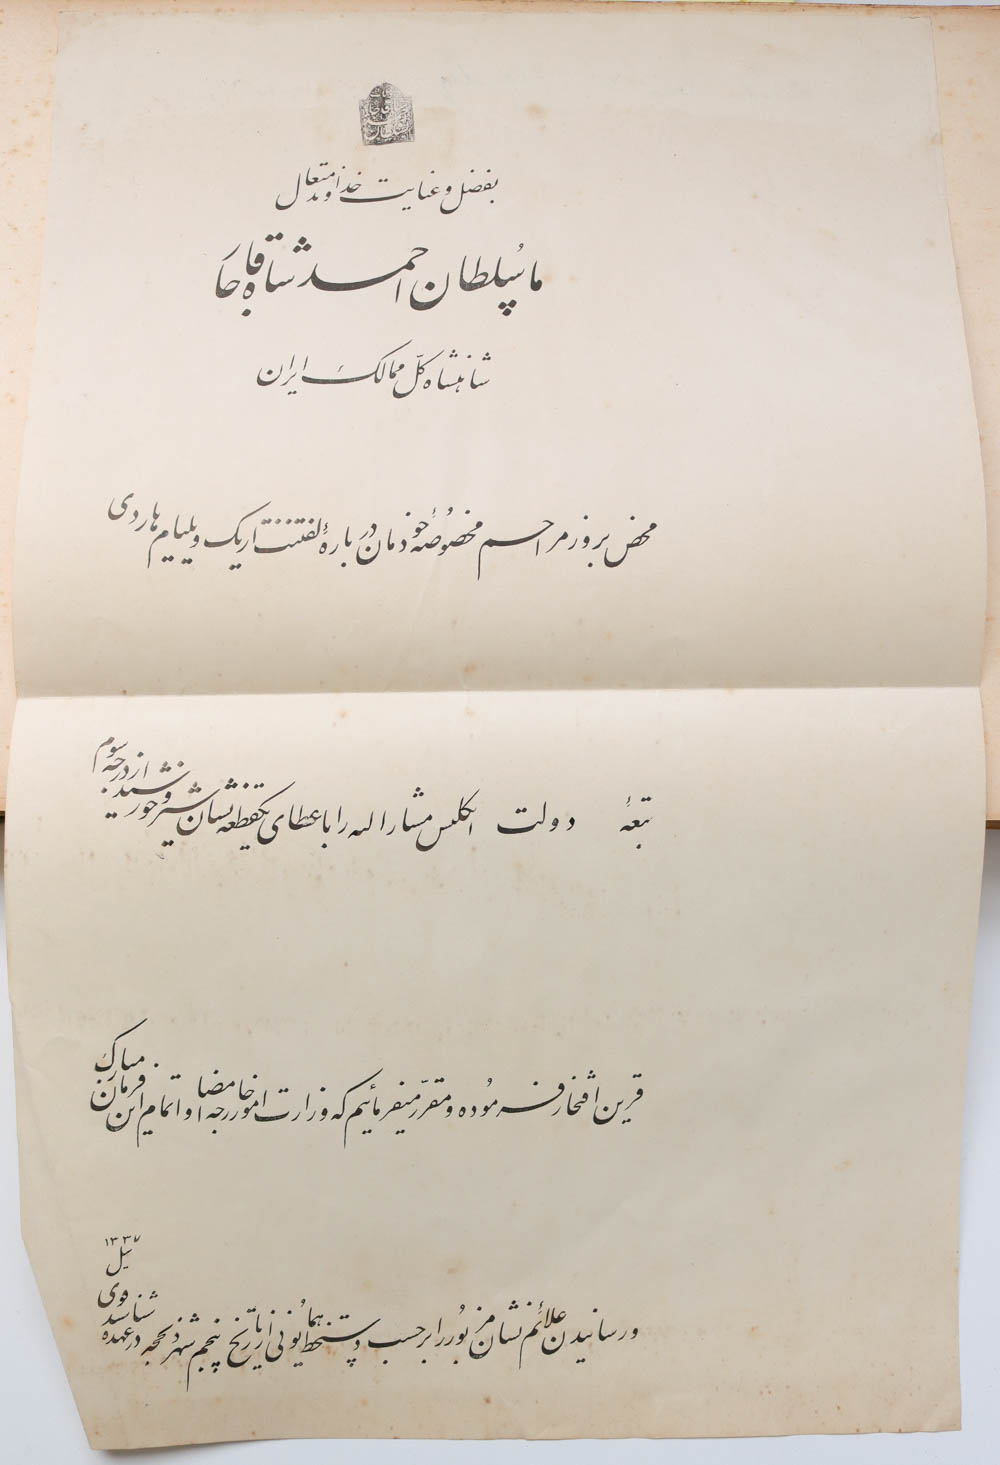 بفضل و عنایت خداوند متعال
ما سلطان احمد شاه قاجار
شاهنشاه کلّ ممالک ایران
محض بروز مراحم مخصوصهٔ خودمان دربارهٔ لفتننت اریک ویلیام هاردی
تبعهٔ دولت انگلیس مشارالیه را باعطای یکقطعه نشان شیر و خورشید از درجه سوم
قرین افتخار فرموده و مقرّر میفرمائیم که وزارت امور خارجه امضا و اتمام این فرمان مبارک
و رسانیدن علائم نشان مزبور را برحسب دستخط همایونی از تاریخ پنجم شهر ذیحجه در عهده شناسد
ئیل ۱۳۳۷